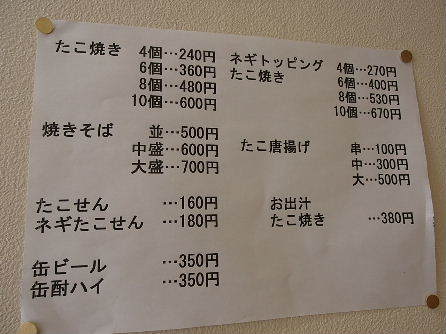 たこ焼き 4個…240円
6個…360円
8個…480円
10個…600円
ネギトッピング
たこ焼き 4個…270円
6個…400円
8個…530円
10個…670円
焼きそば 並…500円
中盛…600円
大盛…700円
たこ唐揚げ 串…100円
中…300円
大…500円
たこせん …160円
ネギたこせん …180円
お出汁
たこ焼き …380円
缶ビール …350円
缶酎ハイ …350円